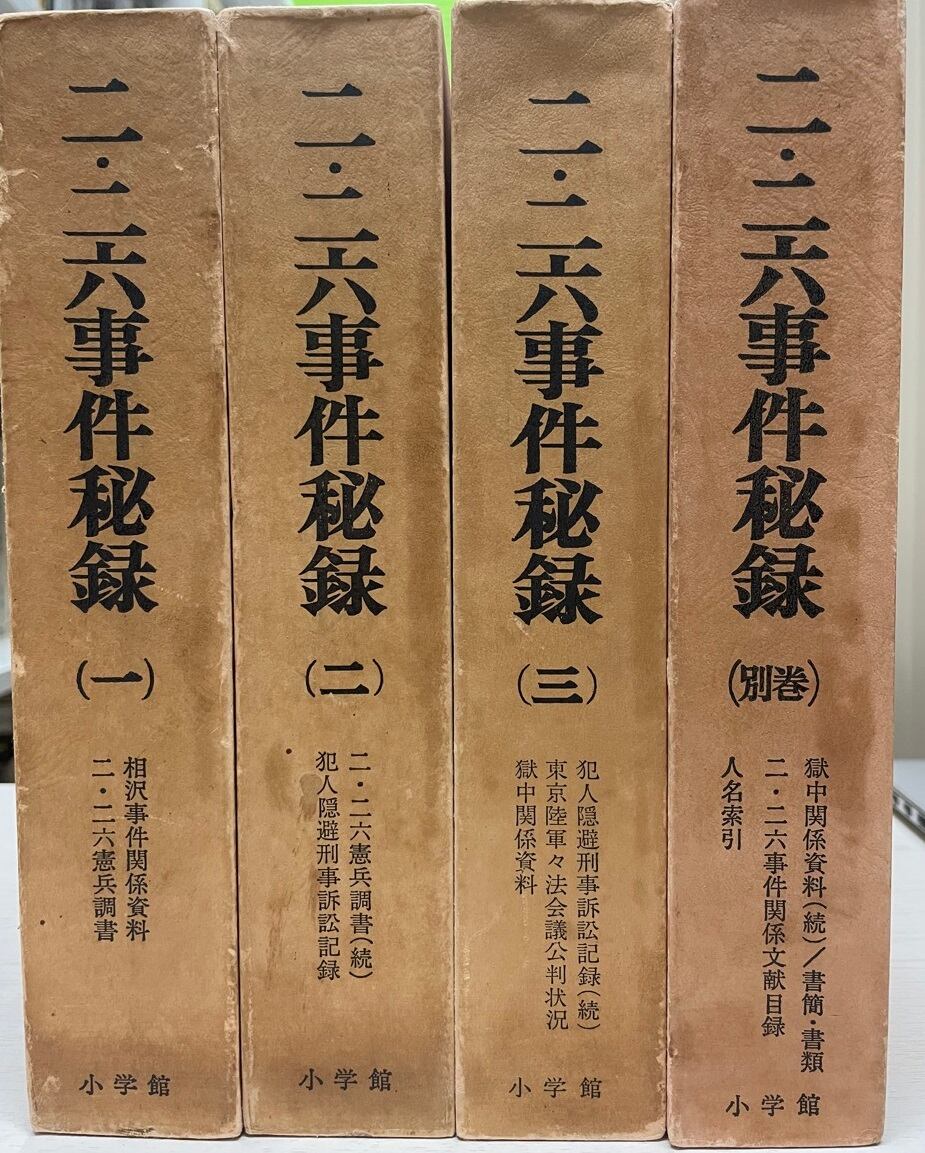 二・二六事件秘録
(一)
相沢事件関係資料
二・二六憲兵調書
小学館
二・二六事件秘録
(二)
二・二六憲兵調書(続)
犯人隠避刑事訴訟記録
小学館
二・二六事件秘録
(三)
犯人隠避刑事訴訟記録(続)
東京陸軍々法会議公判状況
獄中関係資料
小学館
二・二六事件秘録
(別巻)
獄中関係資料(続)/書簡・書類
二・二六事件関係文献目録
人名索引
小学館